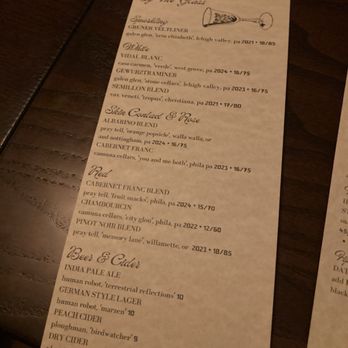 By The Glass
Sparkling
GRUNER VELTLINER
galen glen, 'zero elizabeth', lehigh valley, pa 2021 • 18/85
White
VIDAL BLANC
casa carmen, 'verde', west grove, pa 2024 • 16/75
GEWURZTRAMINER
galen glen, 'stone cellars', lehigh valley, pa 2023 • 16/75
SEMILLON BLEND
vox vineti, 'tropus', christiana, pa 2021 • 17/80
Skin Contact & Rose
ALBARINO BLEND
pray tell, 'orange popsicle', walla walla, or
and nottingham, pa 2024 • 16/75
CABERNET FRANC
camuna cellars, 'you and me both', phila, pa 2023 • 16/75
Red
CABERNET FRANC BLEND
pray tell, 'fruit snacks', phila, pa 2024 • 15/70
CHAMBOURCIN
camuna cellars, 'city glou', phila, pa 2022 • 12/60
PINOT NOIR BLEND
pray tell, 'memory lane', willamette, or 2023 • 18/85
Beer & Cider
INDIA PALE ALE
human robot, 'terrestrial reflections' 10
GERMAN STYLE LAGER
human robot, 'marzen' 10
PEACH CIDER
ploughman, 'birdwatcher' 9
DRY CIDER